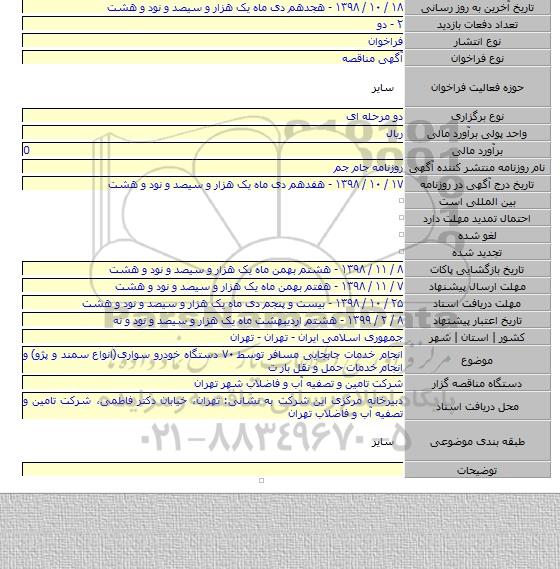 تاریخ آخرین به روز رسانی ۱۸ / ۱۰ / ۱۳۹۸ - هجدهم دی ماه یک هزار و سیصد و نود و هشت
تعداد دفعات بازدید ۲ - دو
نوع انتشار فراخوان
نوع فراخوان آگهی مناقصه
حوزه فعالیت فراخوان سایر
نوع برگزاری دو مرحله ای
واحد پولی برآورد مالی ریال
برآورد مالی 0
نام روزنامه منتشر کننده آگهی روزنامه جام جم
تاریخ درج آگهی در روزنامه ۱۷ / ۱۰ / ۱۳۹۸ - هفدهم دی ماه یک هزار و سیصد و نود و هشت
بین المللی است
احتمال تمدید مهلت دارد
لغو شده
تجدید شده
تاریخ بازگشایی پاکات ۸ / ۱۱ / ۱۳۹۸ - هشتم بهمن ماه یک هزار و سیصد و نود و هشت
مهلت ارسال پیشنهاد ۷ / ۱۱ / ۱۳۹۸ - هفتم بهمن ماه یک هزار و سیصد و نود و هشت
مهلت دریافت اسناد ۲۵ / ۱۰ / ۱۳۹۸ - بیست و پنجم دی ماه یک هزار و سیصد و نود و هشت
تاریخ اعتبار پیشنهاد ۸ / ۲ / ۱۳۹۹ - هشتم اردیبهشت ماه یک هزار و سیصد و نود و نه
کشور | استان | شهر جمهوری اسلامی ایران - تهران - تهران
موضوع انجام خدمات جابجایی مسافر توسط ۷۰ دستگاه خودرو سواری(انواع سمند و پژو) و
انجام خدمات حمل و نقل بار ت
دستگاه مناقصه گزار شرکت تامین و تصفیه آب و فاضلاب شهر تهران
محل دریافت اسناد دبیرخانه مرکزی این شرکت به نشانی: تهران، خیابان دکتر فاطمی، شرکت تامین و
تصفیه آب و فاضلاب تهران
طبقه بندی موضوعی سایر
توضیحات
۰۲۱-۸۸۳۴۹۶۷۰-۵